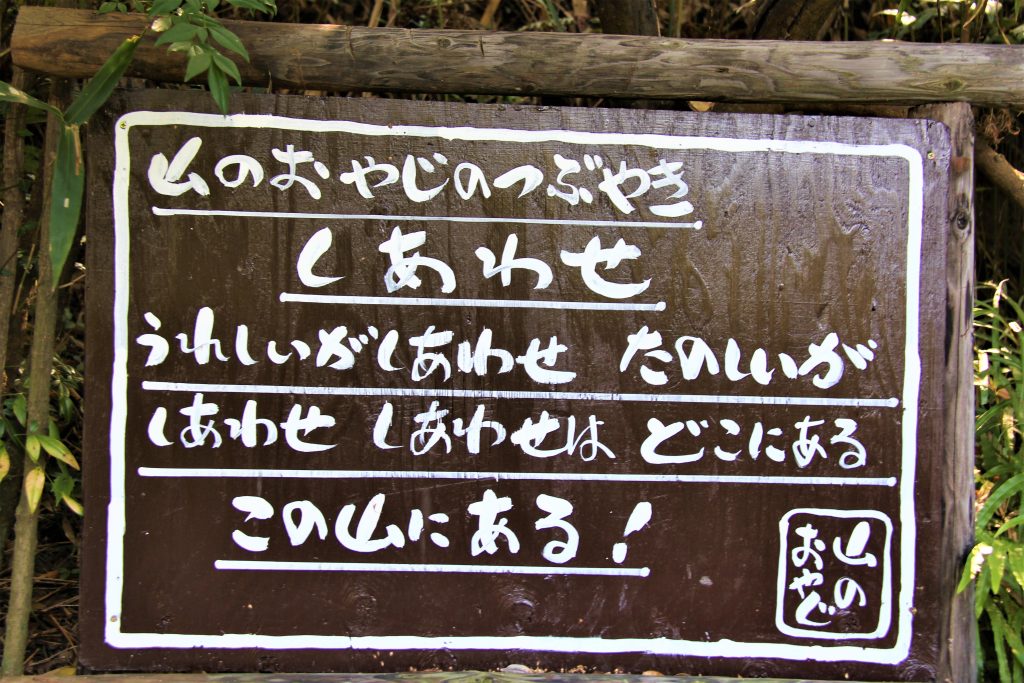 山のおやじのつぶやき
しあわせ
うれしいがしあわせ たのしいが
しあわせ しあわせは どこにある
この山にある!
山の
おやじ